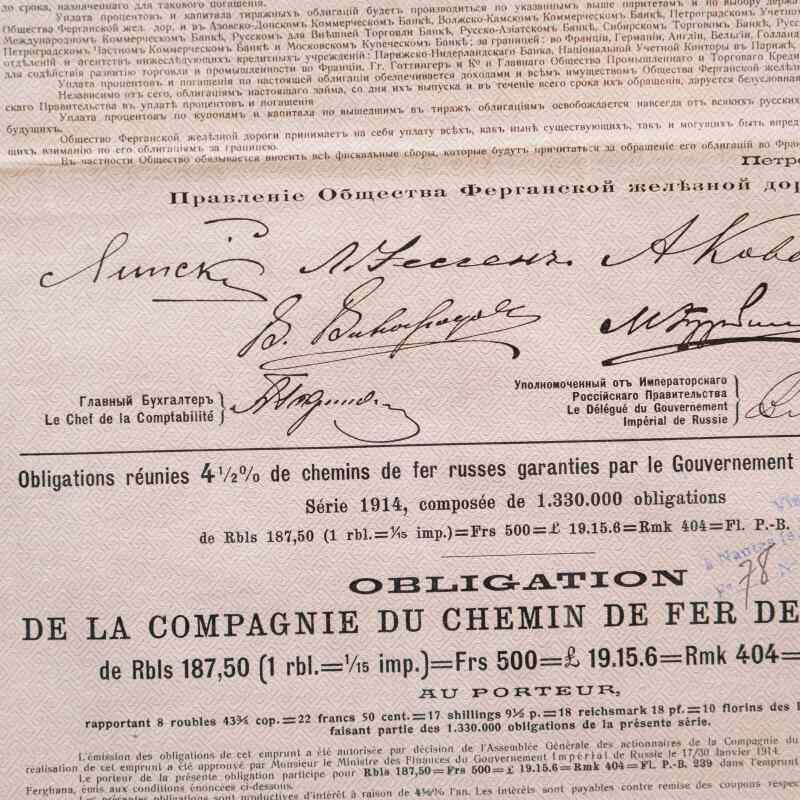 до срока, назначеннаго для такового погашенія.
Уплата процентовъ и капитала тиражныхъ облигацій будетъ производиться по указаннымъ выше паритетамъ и по выбору держат
Обществa Ферганской жел. дор. и въ Азовско-Донскомъ Коммерческомъ Банкѣ, Волжско-Камскомъ Коммерческомъ Банкѣ, Петроградскомъ Учетно
Международномъ Коммерческомъ Банкѣ, Русскомъ для Внѣшней Торговли Банкѣ, Русско-Азіатскомъ Банкѣ, Сибирскомъ Торговомъ Банкѣ, Русс
Петроградскомъ Частномъ Коммерческомъ Банкѣ и Московскомъ Купеческомъ Банкѣ; за границей: во Франціи, Германіи, Англіи, Бельгіи, Голланд
отдѣленій и агентствъ нижеслѣдующихъ кредитныхъ учрежденій: Парижско-Нидерландскаго Банка, Національной Учетной Конторы въ Парижѣ,
для содѣйствія развитію торговли и промышленности во Франціи, Гг. Готтингеръ и Ко и Главнаго Общества Промышленнаго и Торговаго Креди
Уплата процентовъ и погашенія по настоящей облигаціи обезпечивается доходами и всѣмъ имуществомъ Общества Ферганской желѣзн
Независимо отъ сего, облигаціямъ настоящаго займа, со дня ихъ выпуска и въ теченіе всего срока ихъ обращенія, даруется безусловная
скаго Правительства въ уплатѣ процентовъ и погашенія
Уплата процентовъ по купонамъ и капитала по вышедшимъ въ тиражъ облигаціямъ освобождается навсегда отъ всякихъ русских
будущихъ.
Общество Ферганской желѣзной дороги принимаетъ на себя уплату всѣхъ, какъ нынѣ существующихъ, такъ и могущихъ быть впред
щихъ взиманію по его облигаціямъ за границею.
Въ частности Общество обязывается вносить всѣ фискальные сборы, которые будутъ причитаться за обращеніе его облигацій во Фран
Петро
Правленіе Общества Ферганской желѣзной дор
Липскій Л. Нессенъ. А Кова
В. Виноградов
Главный Бухгалтеръ
Le Chef de la Comptabilité
Уполномоченный отъ Императорскаго
Россійскаго Правительства
Le Délégué du Gouvernement
Impérial de Russie
Obligations réunies 4½% de chemins de fer russes garanties par le Gouvernement
Série 1914, composée de 1.330.000 obligations
de Rbls 187,50 (1 rbl.=1/15 imp.)=Frs 500=£ 19.15.6=Rmk 404=Fl. P.-B.
à Nantes
78
OBLIGATION
DE LA COMPAGNIE DU CHEMIN DE FER DE
de Rbls 187,50 (1 rbl.=1/15 imp.)=Frs 500=£ 19.15.6=Rmk 404=
AU PORTEUR,
rapportant 8 roubles 43¾ cop.=22 francs 50 cent.=17 shillings 9½ p.=18 reichsmark 18 pf.=10 florins des
faisant partie des 1.330.000 obligations de la présente série.
L'émission des obligations de cet emprunt a été autorisée par décision de l'Assemblée Générale des actionnaires de la Compagnie du
réalisation de cet emprunt a été approuvé par Monsieur le Ministre des Finances du Gouvernement Impérial de Russie le 17/30 Janvier 1914.
Le porteur de la présente obligation participe pour Rbls 187,50=Frs 500=£ 19.15.6=Rmk 404=Fl. P.-B. 239 dans l'emprunt
Ferghana, émis aux conditions énoncées ci-dessous.
Les présentes obligations sont productives d'intérêt à raison de 4½% l'an. Les intérêts sont payables contre remise des coupons respec